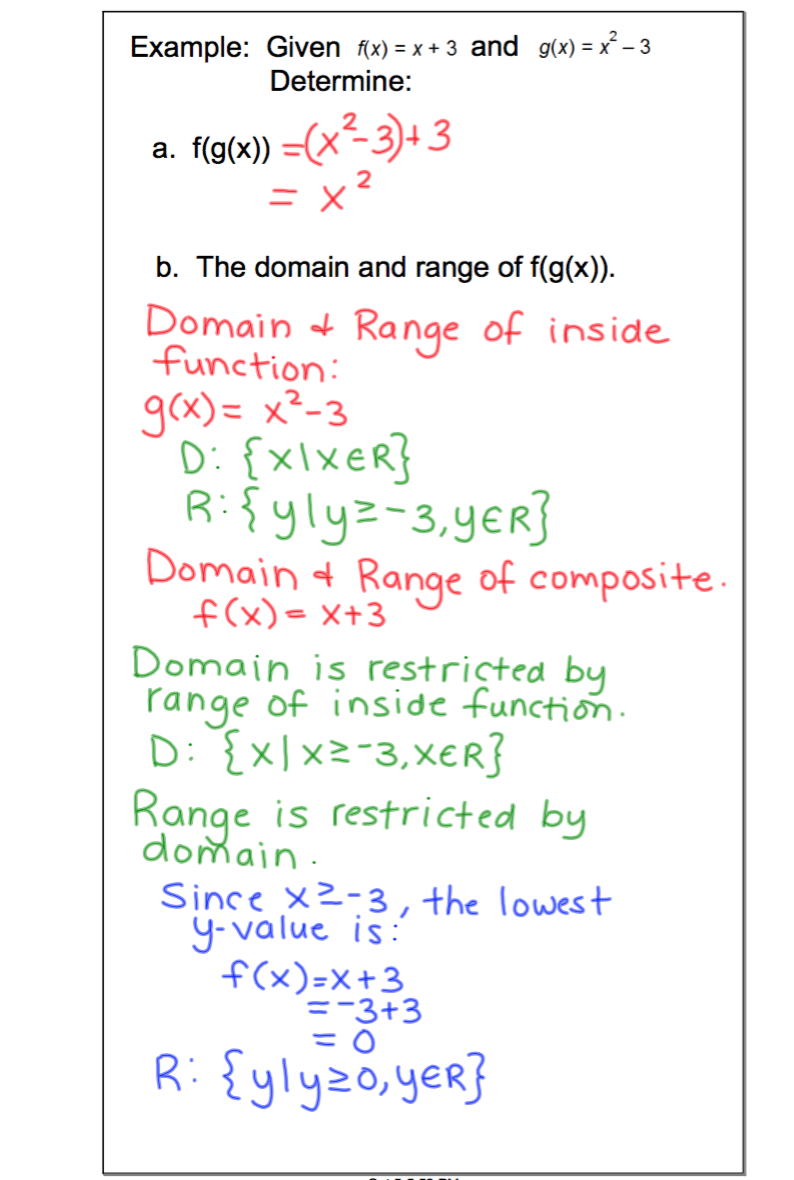 Example: Given f(x) = x + 3 and g(x) = x² – 3
Determine:
a. f(g(x)) =(x²-3)+3
= x²
b. The domain and range of f(g(x)).
Domain & Range of inside
function:
g(x)= x²-3
D: {x|x∈R}
R: {y|y≥-3,y∈R}
Domain & Range of composite.
f(x)= x+3
Domain is restricted by
range of inside function.
D: {x|x≥-3,x∈R}
Range is restricted by
domain.
Since x≥-3, the lowest
y-value is:
f(x)=x+3
=-3+3
= 0
R: {y|y≥0,y∈R}